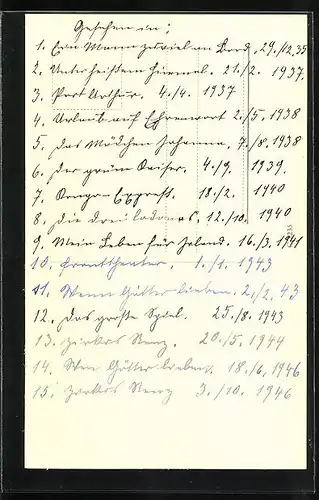 Gesehen in:
1. Ein Mann zuviel an Bord, 29./12.35
2. Unter heißem Himmel. 21./2. 1937.
3. Port Arthur. 4./4. 1937
4. Urlaub auf Ehrenwort 2./5. 1938
5. Das Mädchen Johanna, 7./8. 1938
6. Der grüne Kaiser. 4./9. 1939.
7. Kongo-Express. 18./2. 1940
8. Die drei Codonas. 12./10. 1940
9. Mein Leben für Irland. 16./3. 1941
10. Fronttheater. 1./1. 1943
11. Wenn Götter lieben. 2./2. 43
12. Das große Spiel. 25./8. 1943
13. Zirkus Renz. 20./5. 1944
14. Wen Götter lieben. 18./6. 1946
15. Zirkus Renz 3./10. 1946